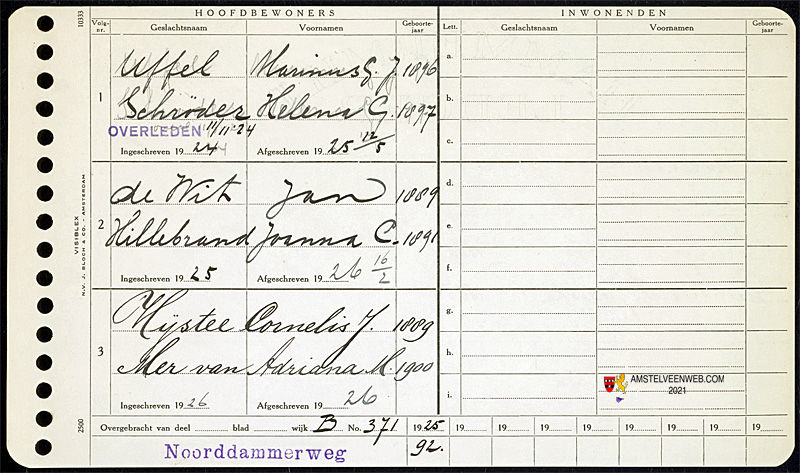 HOOFDBEWONERS
INWONENDEN
Volg-nr.
Geslachtsnaam
Voornamen
Geboorte-jaar
Lett.
Geslachtsnaam
Voornamen
Geboorte-jaar
10333
1
Uffel Marinus G. J. 1896
Schröder Helena G. 1897
OVERLEDEN 11/11-24
Ingeschreven 19 24
Afgeschreven 19 25 12/5
2
de Wit Jan 1889
Hillebrand Joanna C. 1891
Ingeschreven 19 25
Afgeschreven 19 26 16/2
3
Mijstee Cornelis J. 1889
Mer van Adriana M. 1900
Ingeschreven 19 26
Afgeschreven 19 26
a.
b.
c.
d.
e.
f.
g.
h.
i.
VISIBLEX
N.V. J. BLOCH & CO. AMSTERDAM
2500
AMSTELVEENWEB.COM
2021
Overgebracht van deel blad wijk B No. 371 1925 19 19 19 19 19 19 19 19 19
Noorddammerweg 92.